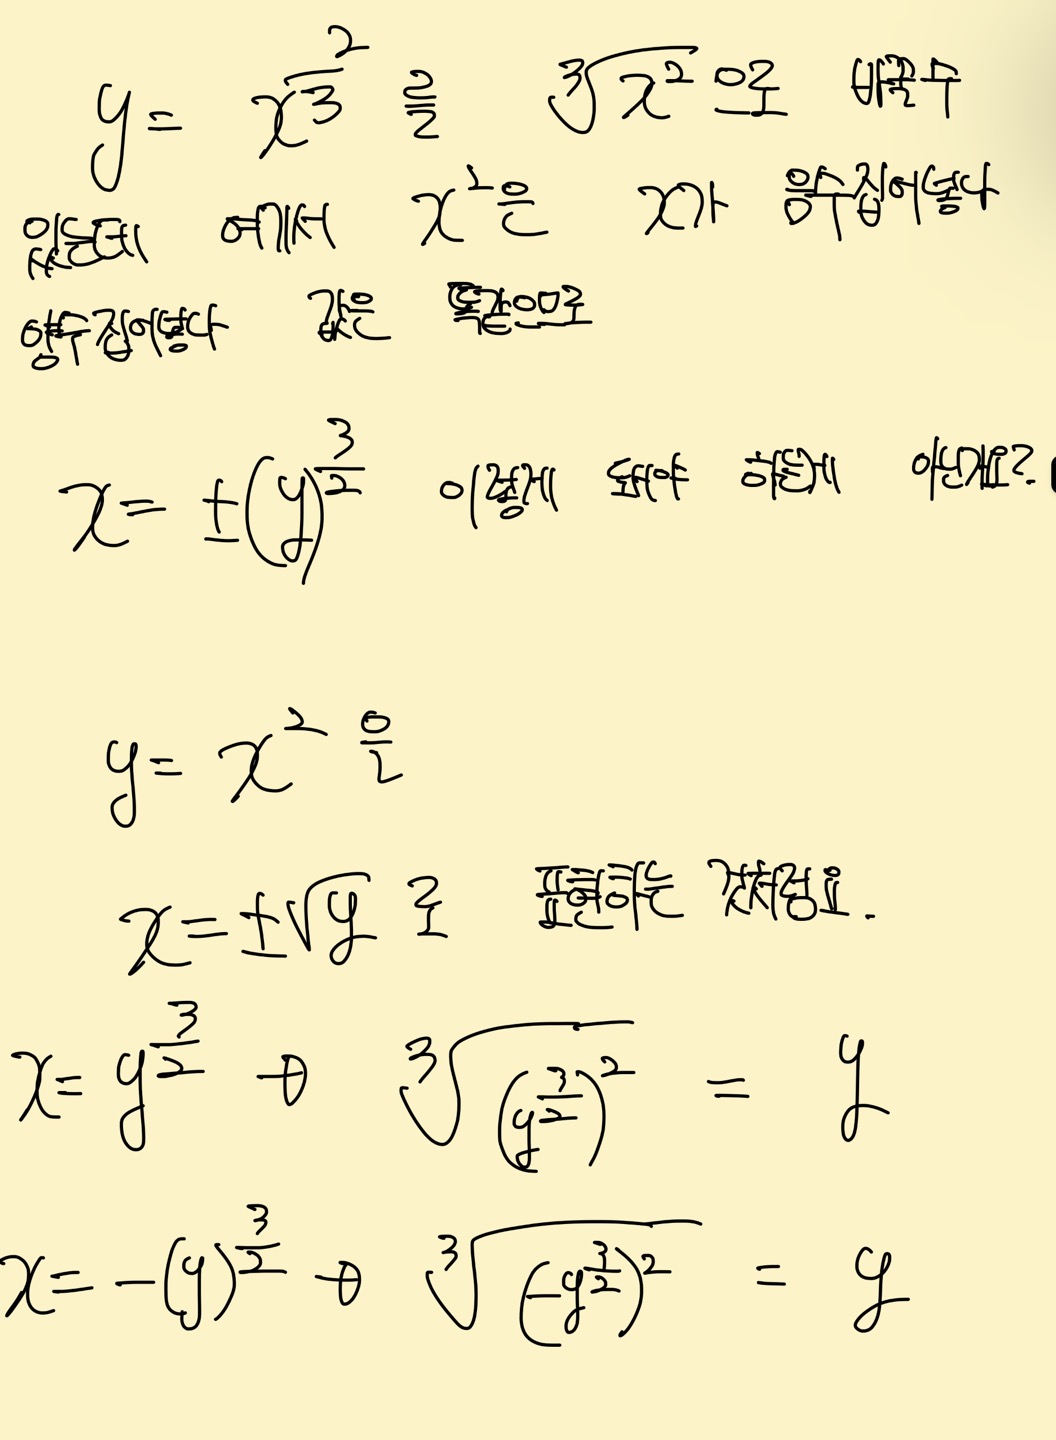 y = x^(2/3) 를 ∛(x²) 으로 바꿀수
있는데 여기서 x²은 x가 음수집어넣나
양수집어넣나 값은 똑같으므로
x = ±(y)^(3/2) 이렇게 돼야 하는게 아닌가요?
y = x² 을
x = ±√y 로 표현하는 것처럼요.
x = y^(3/2) → ∛((y^(3/2))²) = y
x = -(y)^(3/2) → ∛((-y^(3/2))²) = y